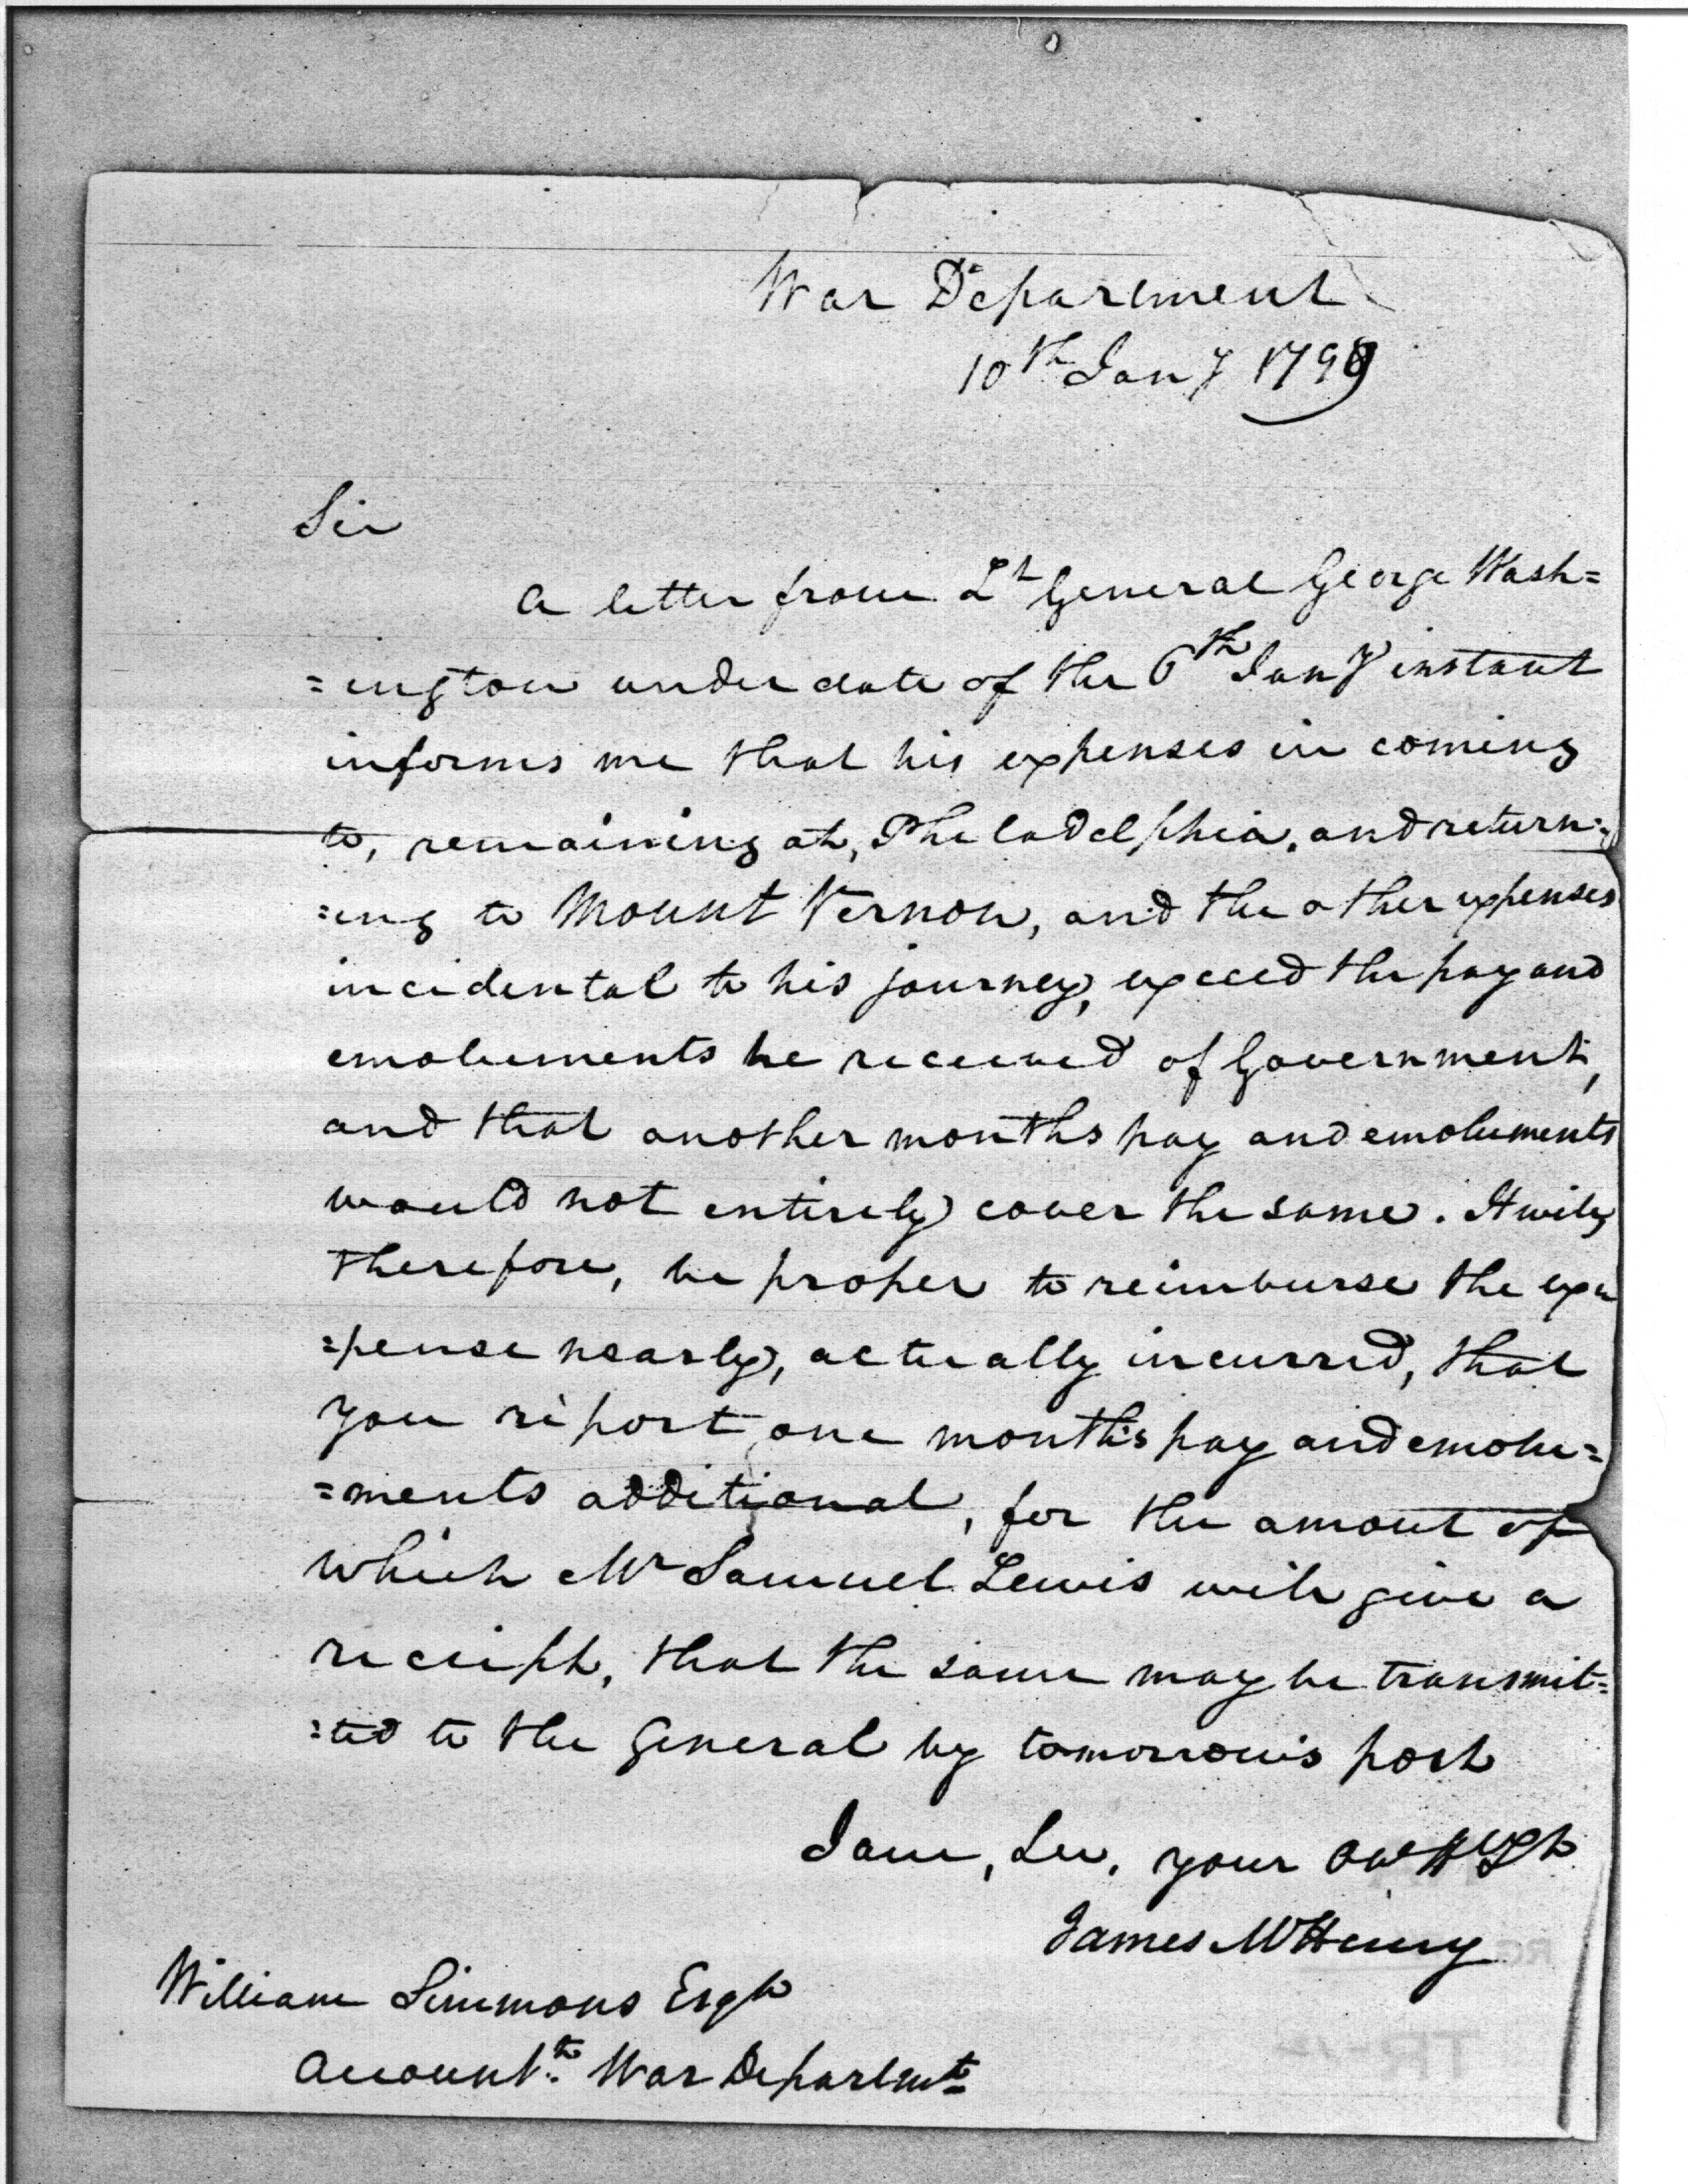 War Department
10th Jany 1799
Sir
A letter from Lt General George Wash=
=ington under date of the 6th Jany instant
informs me that his expenses in coming
to, remaining at, Philadelphia, and return=
=ing to Mount Vernon, and the other expenses
incidental to his journey, exceed the pay and
emoluments he received of Government,
and that another months pay and emoluments
would not entirely cover the same. It will,
therefore, be proper to reimburse the ex=
=pense nearly, actually incurred, that
you report one month's pay and emolu=
=ments additional, for the amout of
which Mr Samuel Lewis will give a
receipt, that the same may be transmit=
=ted to the General by tomorrow's post
I am, Sir, your
James McHenry
William Simmons Esqr
Accountt War Departmt